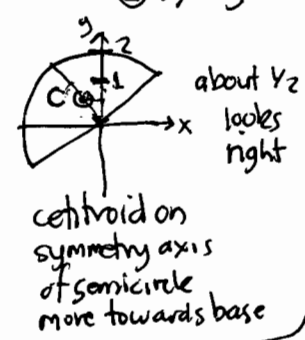 y
2
1
C
x
about 1/2
looks
right
centroid on
symmetry axis
of semicircle
more towards base